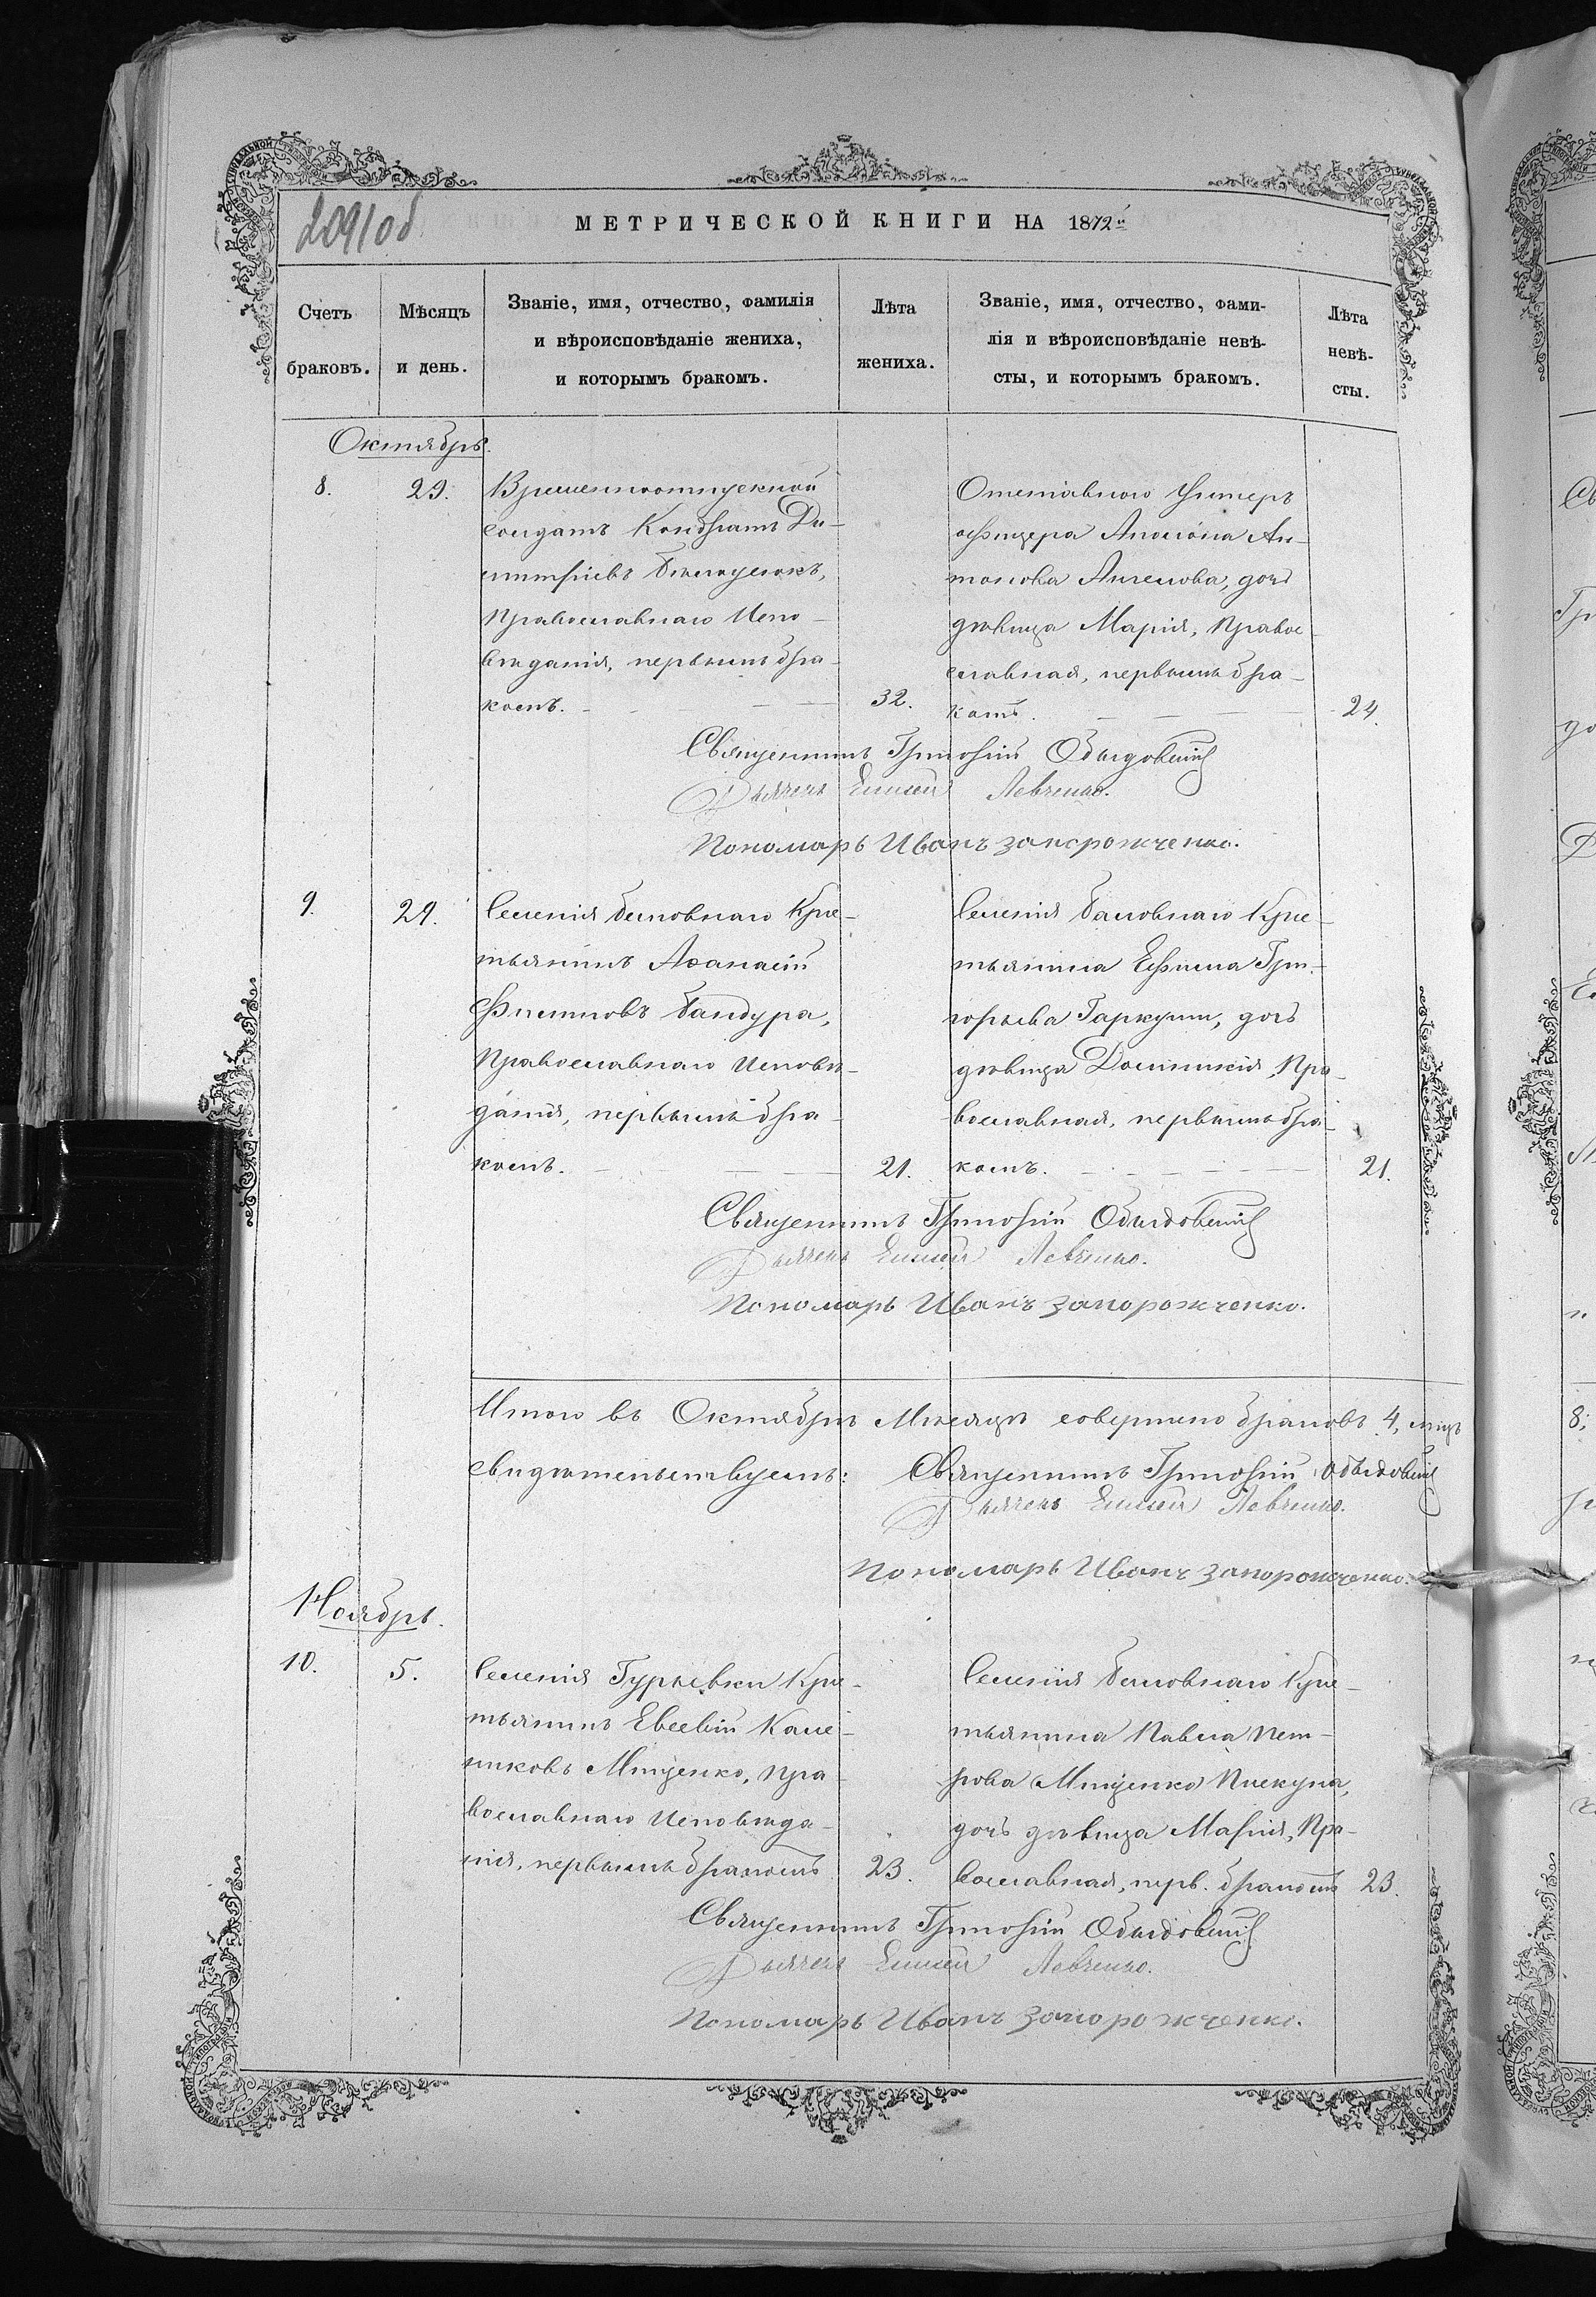 209/об
МЕТРИЧЕСКОЙ КНИГИ НА 1872й
Счетъ браковъ.
Мѣсяцъ и день.
Званіе, имя, отчество, фамилія
и вѣроисповѣданіе жениха,
и которымъ бракомъ.
Лѣта
жениха.
Званіе, имя, отчество, фами-
лія и вѣроисповѣданіе невѣ-
сты, и которымъ бракомъ.
Лѣта
невѣ-
сты.
Октябрь.
8.
29.
Временноотпускной
солдатъ Кондратъ Ди-
митріевъ
Православнаго Испо-
вѣданія, первымъ бра-
комъ.
32.
Отставного Унтеръ
офицера Ан-
тонова Ангелова, дочь
дѣвица Марія, Правос-
славная, первымъ бра-
комъ.
24.
Священникъ Григорій
Дьячекъ Елисей Левченко.
Пономарь Иванъ Запорожченко.
9.
29.
Селенія Баловнаго Крес-
тьянинъ Аѳанасій
Филиповъ Бандура,
Православнаго Исповѣ-
данія, первымъ бра-
комъ.
21.
Селенія Баловнаго Крес-
тьянина Ефима Гри-
горьева Гаркуши, дочь
дѣвица Домникія, Пра-
вославная, первымъ бра-
комъ.
21.
Священникъ Григорій
Дьячекъ Елисей Левченко.
Пономарь Иванъ Запорожченко.
Итого въ Октябрѣ Мѣсяцѣ совершено браковъ 4,
свидѣтельствуемъ: Священникъ Григорій
Дьячекъ Елисей Левченко.
Пономарь Иванъ Запорожченко.
Ноябрь.
10.
5.
Селенія Гурьевки Крес-
тьянинъ Евсевій Кале-
никовъ Мищенко, Пра-
вославнаго Исповѣда-
нія, первымъ бракомъ
23.
Селенія Баловнаго Крес-
тьянина Павла Пет-
рова Мищенко Пискуна,
дочь дѣвица Марія, Пра-
вославная, перв. бракомъ
23.
Священникъ Григорій
Дьячекъ Елисей Левченко.
Пономарь Иванъ Запорожченко.